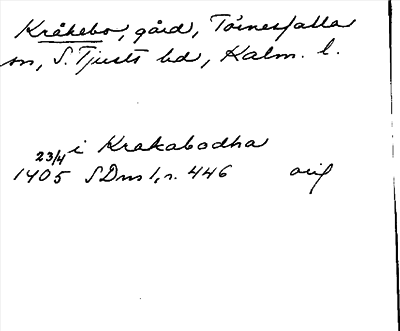 Kråkebo, gård, Törnesfalla
sn, S. Tjusts hd, Kalm. l.
i Krakabodha
23/4
1405 SDns 1, n. 446 orig